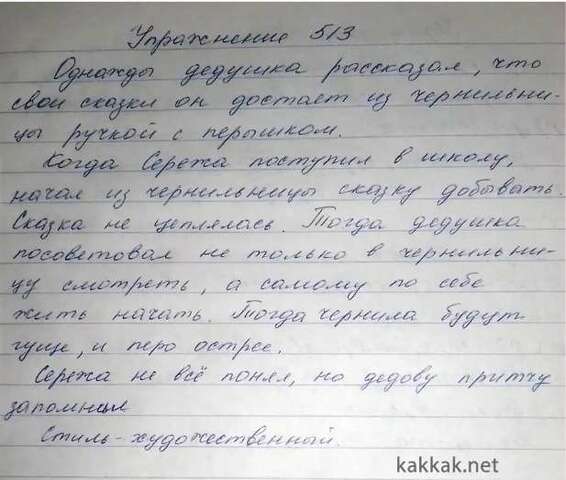 Упражнение 513
Однажды дедушка рассказал, что
свои сказки он достает из чернильни-
цы ручкой с перышком.
Когда Сережа поступил в школу,
начал из чернильницы сказку добывать.
Сказка не цеплялась. Тогда дедушка
посоветовал не только в чернильни-
цу смотреть, а самому по себе
жить начать. Тогда чернила будут
гуще, и перо острее.
Сережа не всё понял, но дедову притчу
запомнил
Стиль-художественный.
kakkak.net